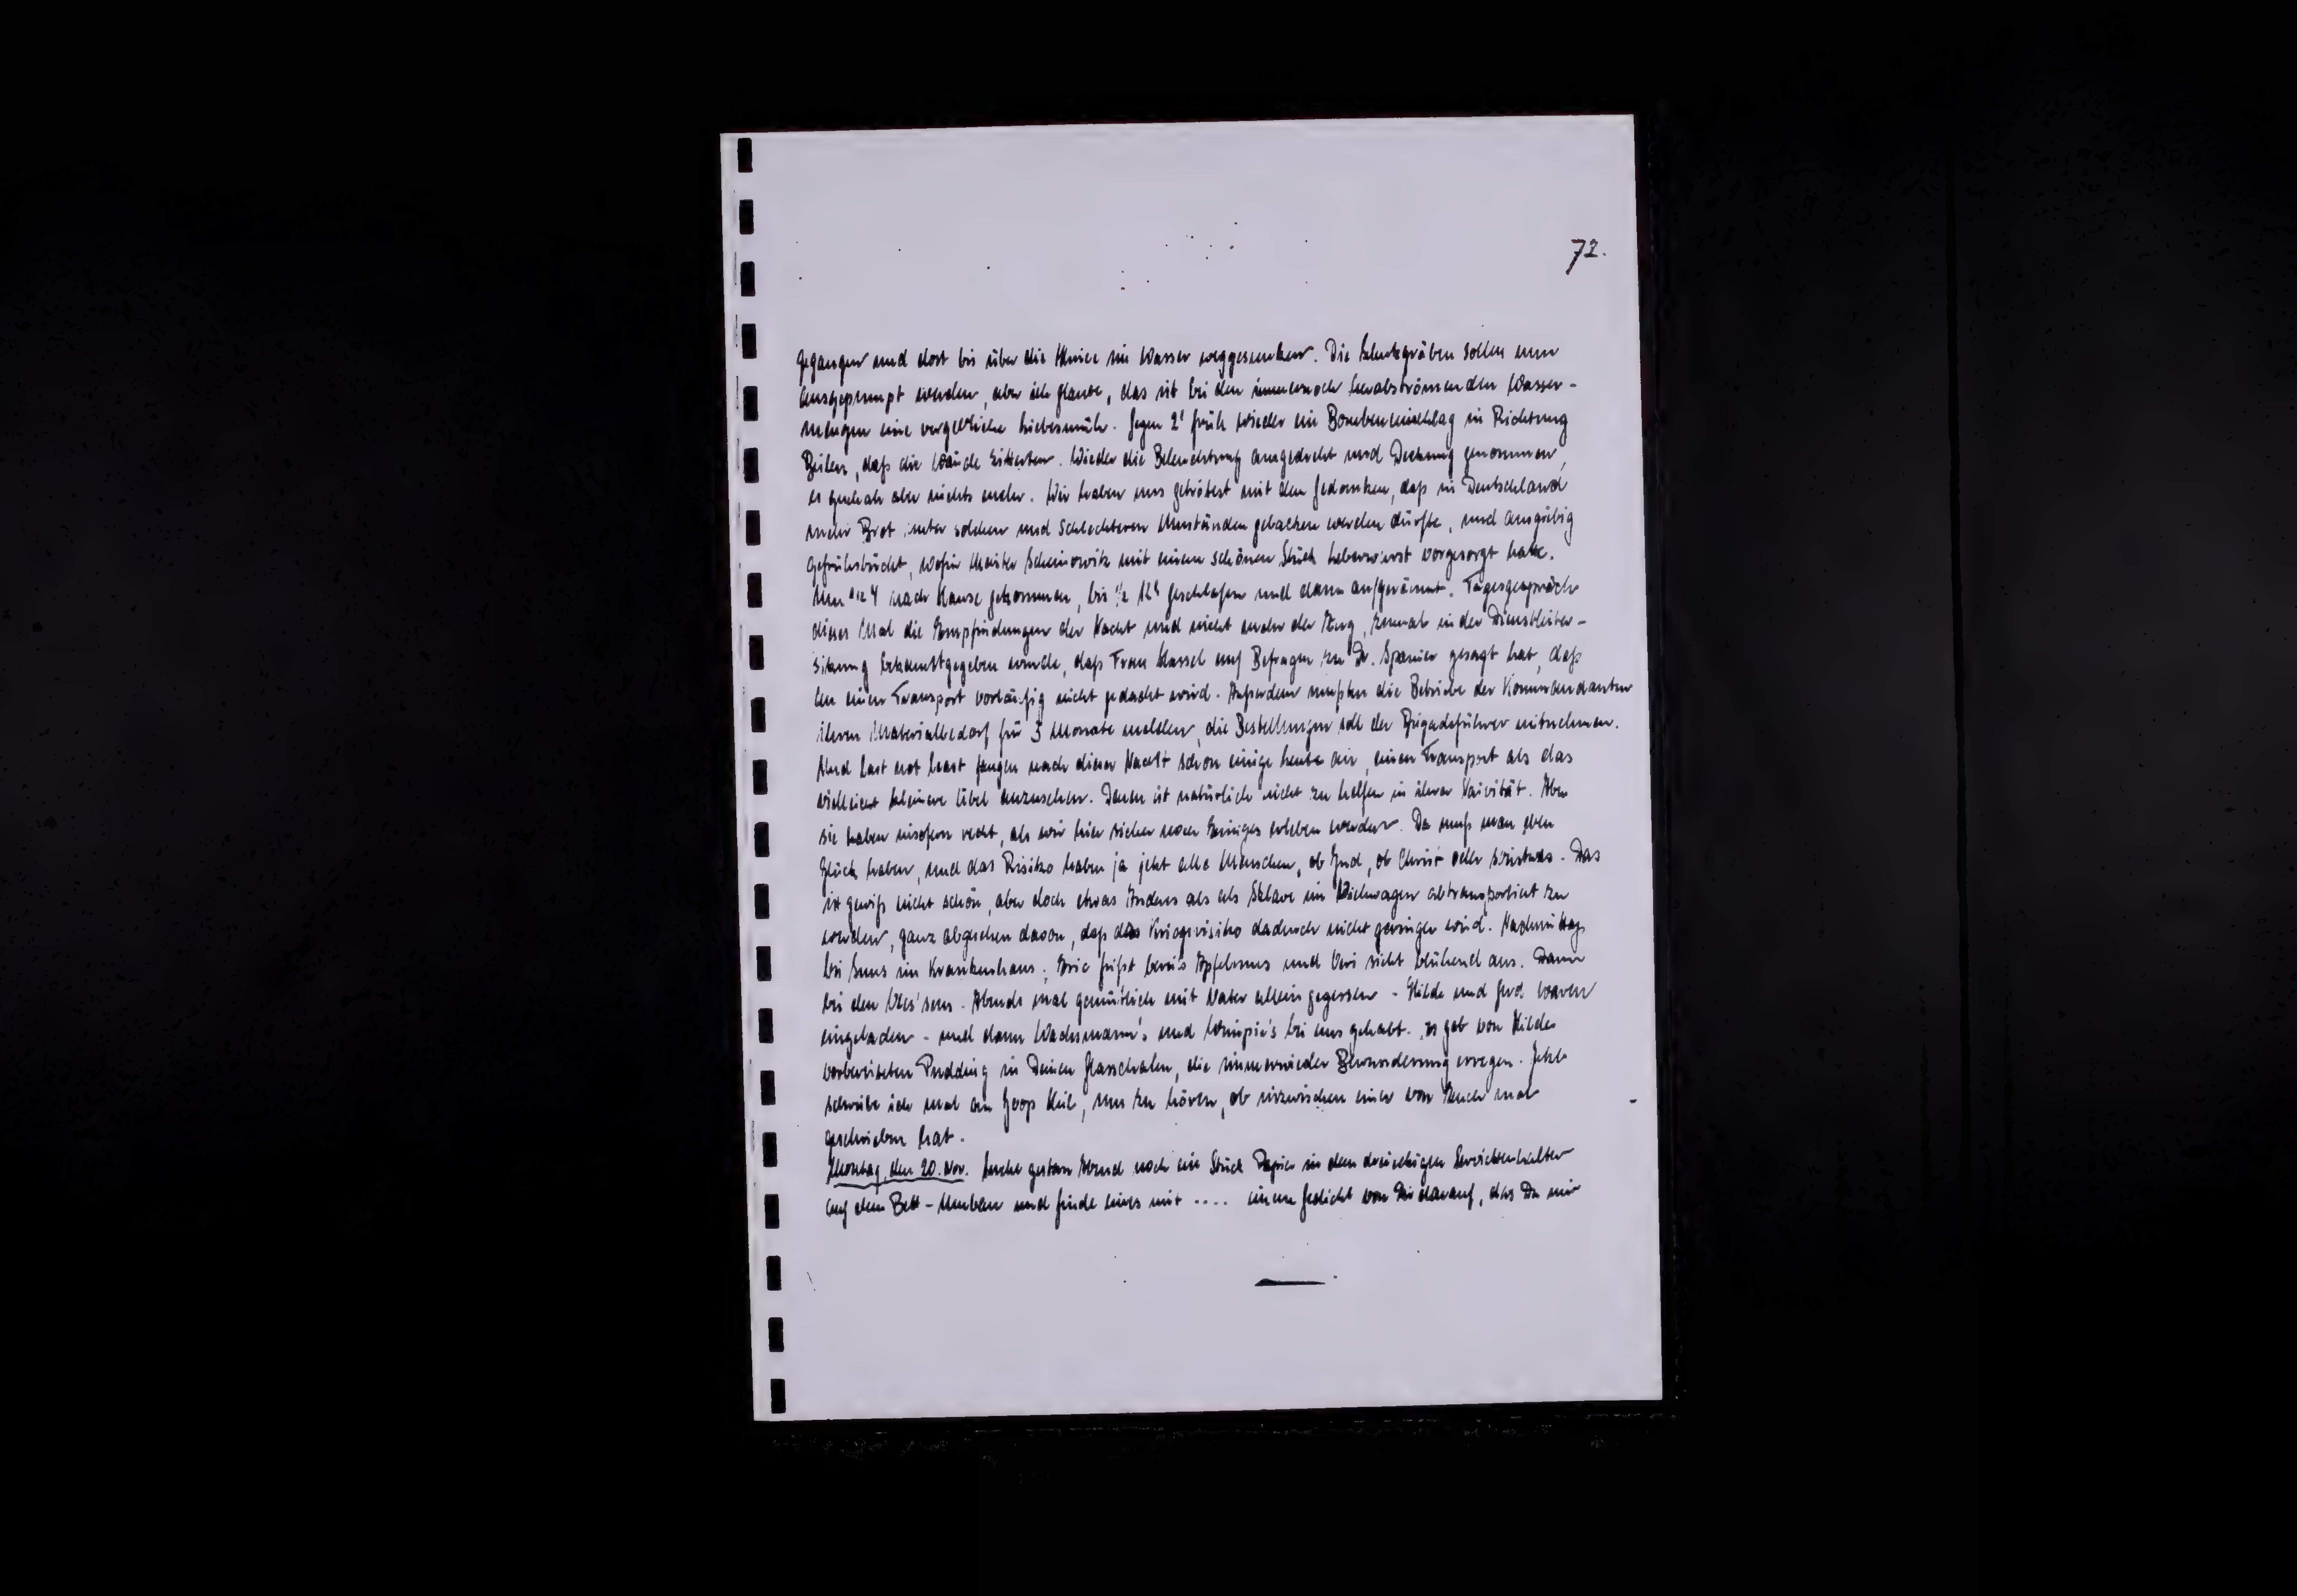 72.
gegangen und dort bis über die Kniee im Wasser weggesunken. Die Schutzgräben sollen nun
ausgepumpt werden, aber ich glaube, das ist bei den immernoch herabströmenden Wasser-
mengen eine vergebliche Liebesmüh. Gegen 2ʰ früh wieder ein Bombeneinschlag in Richtung
Beilen, daß die Wände zitterten. Wieder die Beleuchtung ausgedreht und Deckung genommen,
es geschah aber nichts mehr. Wir haben uns getröstet mit dem Gedanken, daß in Deutschland
mehr Brot unter solchen und schlechteren Umständen gebacken werden dürfte, und ausgiebig
gefrühstückt, wofür Meister mit einem schönen Stück Leberwurst vorgesorgt hatte.
Um 4 nach Hause gekommen, bis ½ 12ʰ geschlafen und dann aufgeräumt. Tagesgespräch
dieses Mal die Empfindungen der Nacht und nicht mehr der Zug, zumal in der Dienstleiter-
sitzung bekanntgegeben wurde, daß Frau Hassel auf Befragen zu Dr. Spanier gesagt hat, daß
an einen Transport vorläufig nicht gedacht wird. Außerdem mußten die Betriebe der Kommandantur
ihren Materialbedarf für 3 Monate melden, die Bestellungen soll der Brigadeführer mitnehmen.
Und last not least fangen nach dieser Nacht schon einige Leute an, einen Transport als das
vielleicht kleinere Übel anzusehen. Denen ist natürlich nicht zu helfen in ihrer Naivität. Aber
sie haben insofern recht, als wir hier sicher noch Einiges erleben werden. Da muß man eben
Glück haben, und das Risiko haben ja jetzt alle Menschen, ob Jud, ob Christ oder sonstwas. Das
ist gewiß nicht schön, aber doch etwas Anderes als als Sklave im Viehwagen abtransportiert zu
werden, ganz abgesehen davon, daß das Kriegsrisiko dadurch nicht geringer wird. Nachmittag
bei Suus im Krankenhaus; Eric frißt bereits Apfelmus und Veri sieht blühend aus. Dann
bei den . Abends mal gemütlich mit Vater allein gegessen - Hilde und Gerd waren
eingeladen - und dann Wachsmann's und bei uns gehabt. Es gab von Hilde
vorbereiteten Pudding in Deinen Glasschalen, die immerwieder Bewunderung erregen. Jetzt
schreibe ich mal an Joop, um zu hören, ob inzwischen einer von Euch mal
geschrieben hat.
Montag, den 20. Nov. Suche gestern Abend noch ein Stück Papier in dem dreieckigen
auf dem Bett-Umbau und finde eines mit .... einem Gedicht von Dir darauf, das Du mir